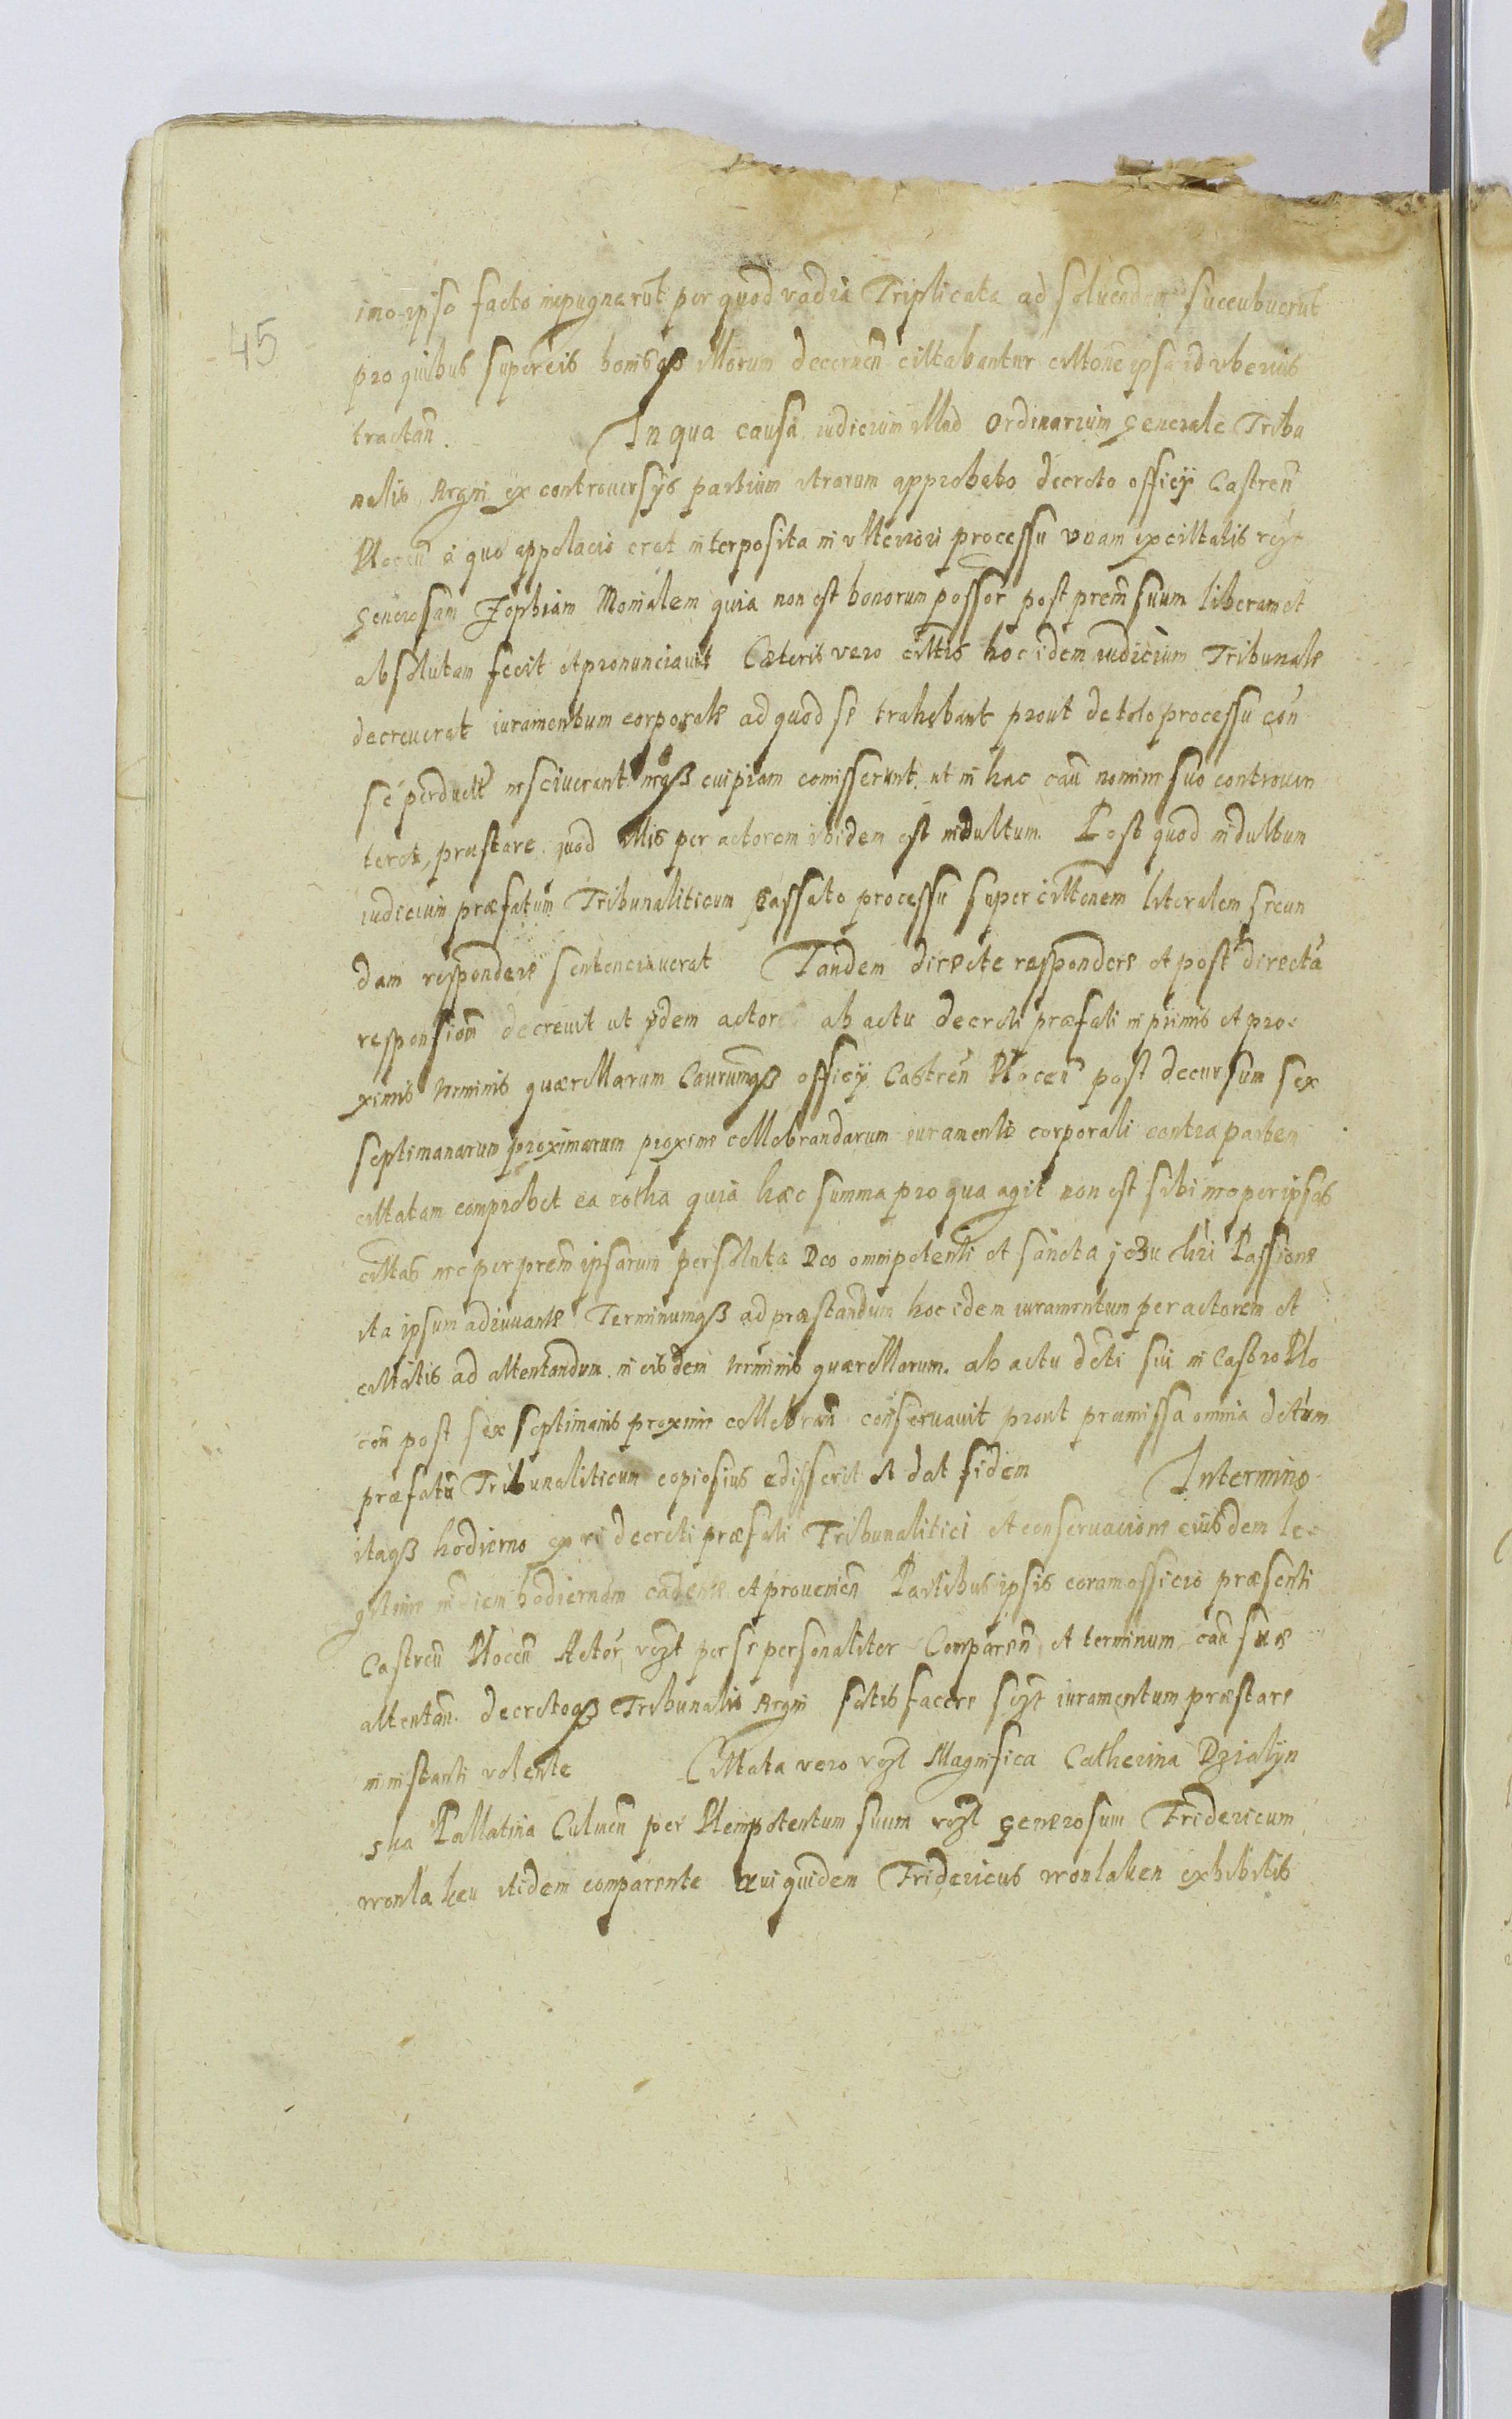 45
imo ipso facto impugnarūt per quod vadia Triplicata ad soluendum succubuerūt
pro quibus super eis bonisqs illorum decernen̄ cittabantur cittōne ipsa id vberius
tractan̄. In qua causa iudicium illud Ordinarium generale Tribu
nalis Regni ex controuersÿs partium vtrarum approbato decreto officÿ Castren̄
Plocen̄ a quo appellacio erat interposita in vlteriori processu vnam ex cittatis vizt
generosam Zophiam Monialem quia non est bonorum possor post prem̄ suum liberam et
absolutam fecit et pronunciauit Cæteris vero cittis hoc idem iudicium Tribunale
decreuerat iuramentum corporale ad quod se trahebant prout de tolo processu con
se perducti nesciuerant neqß cuipiam comisserunt ut in hac cau nomine suo controuer
teret, præstare quod illis per actorem ibidem est indultum. Post quod indultum
iudicium præfatum Tribunaliticum cassato processu super cittōnem literalem secun
dam respondere sentenciauerat Tandem directe respondere et post directā
responsiom̄ decreuit ut idem actor ab actu decreti præfati in primis et pro
ximis terminis quærellarum Caurumqß officÿ Castren̄ Plocen̄ post decursum sex
septimanarum proximarum proxime cellebrandarum iuramento corporali contra partem
cittatam comprobet ea rotha quia hæc summa pro qua agit non est sibi neqper ipsas
cittas nec per prem̄ ipsarum persoluta Deo omnipotenti et sancta jesu Chri Passione
ita ipsum adiuuante Terminumqß ad præstandum hoc idem iuramentum per actorem et
cittatis ad attentandum in eisdem terminis quærellarum. ab actu dc̄ti sui in Castro Plo
cen̄ post sex septimanis proxime cellebran̄ conseruauit prout præmissa omnia dc̄tum
præfatū Tribunaliticum copiosius edisserit et dat fidem In termino
itaqß hodierno ex vi decreti præfati Tribunalitici et conseruacione eiusdem le
gitime in diem hodiernam cadente et prouenien̄ Partibus ipsis coram officio præsenti
Castren̄ Plocen̄ Actor vizt per se personaliter Comparen̄ et terminum cau suæ
attentan̄. decretoqß Tribunalis Regni satisfacere seqr iuramentum præstare
in instanti volente Cittata vero vizt Magnifica Catherina Dzialÿn
ska Pallatina Culmen̄ per Plenipotentum suum vizt generosum Fridericum
wonlaken itidem comparente Qui quidem Fridericus wonlaken exhibitis